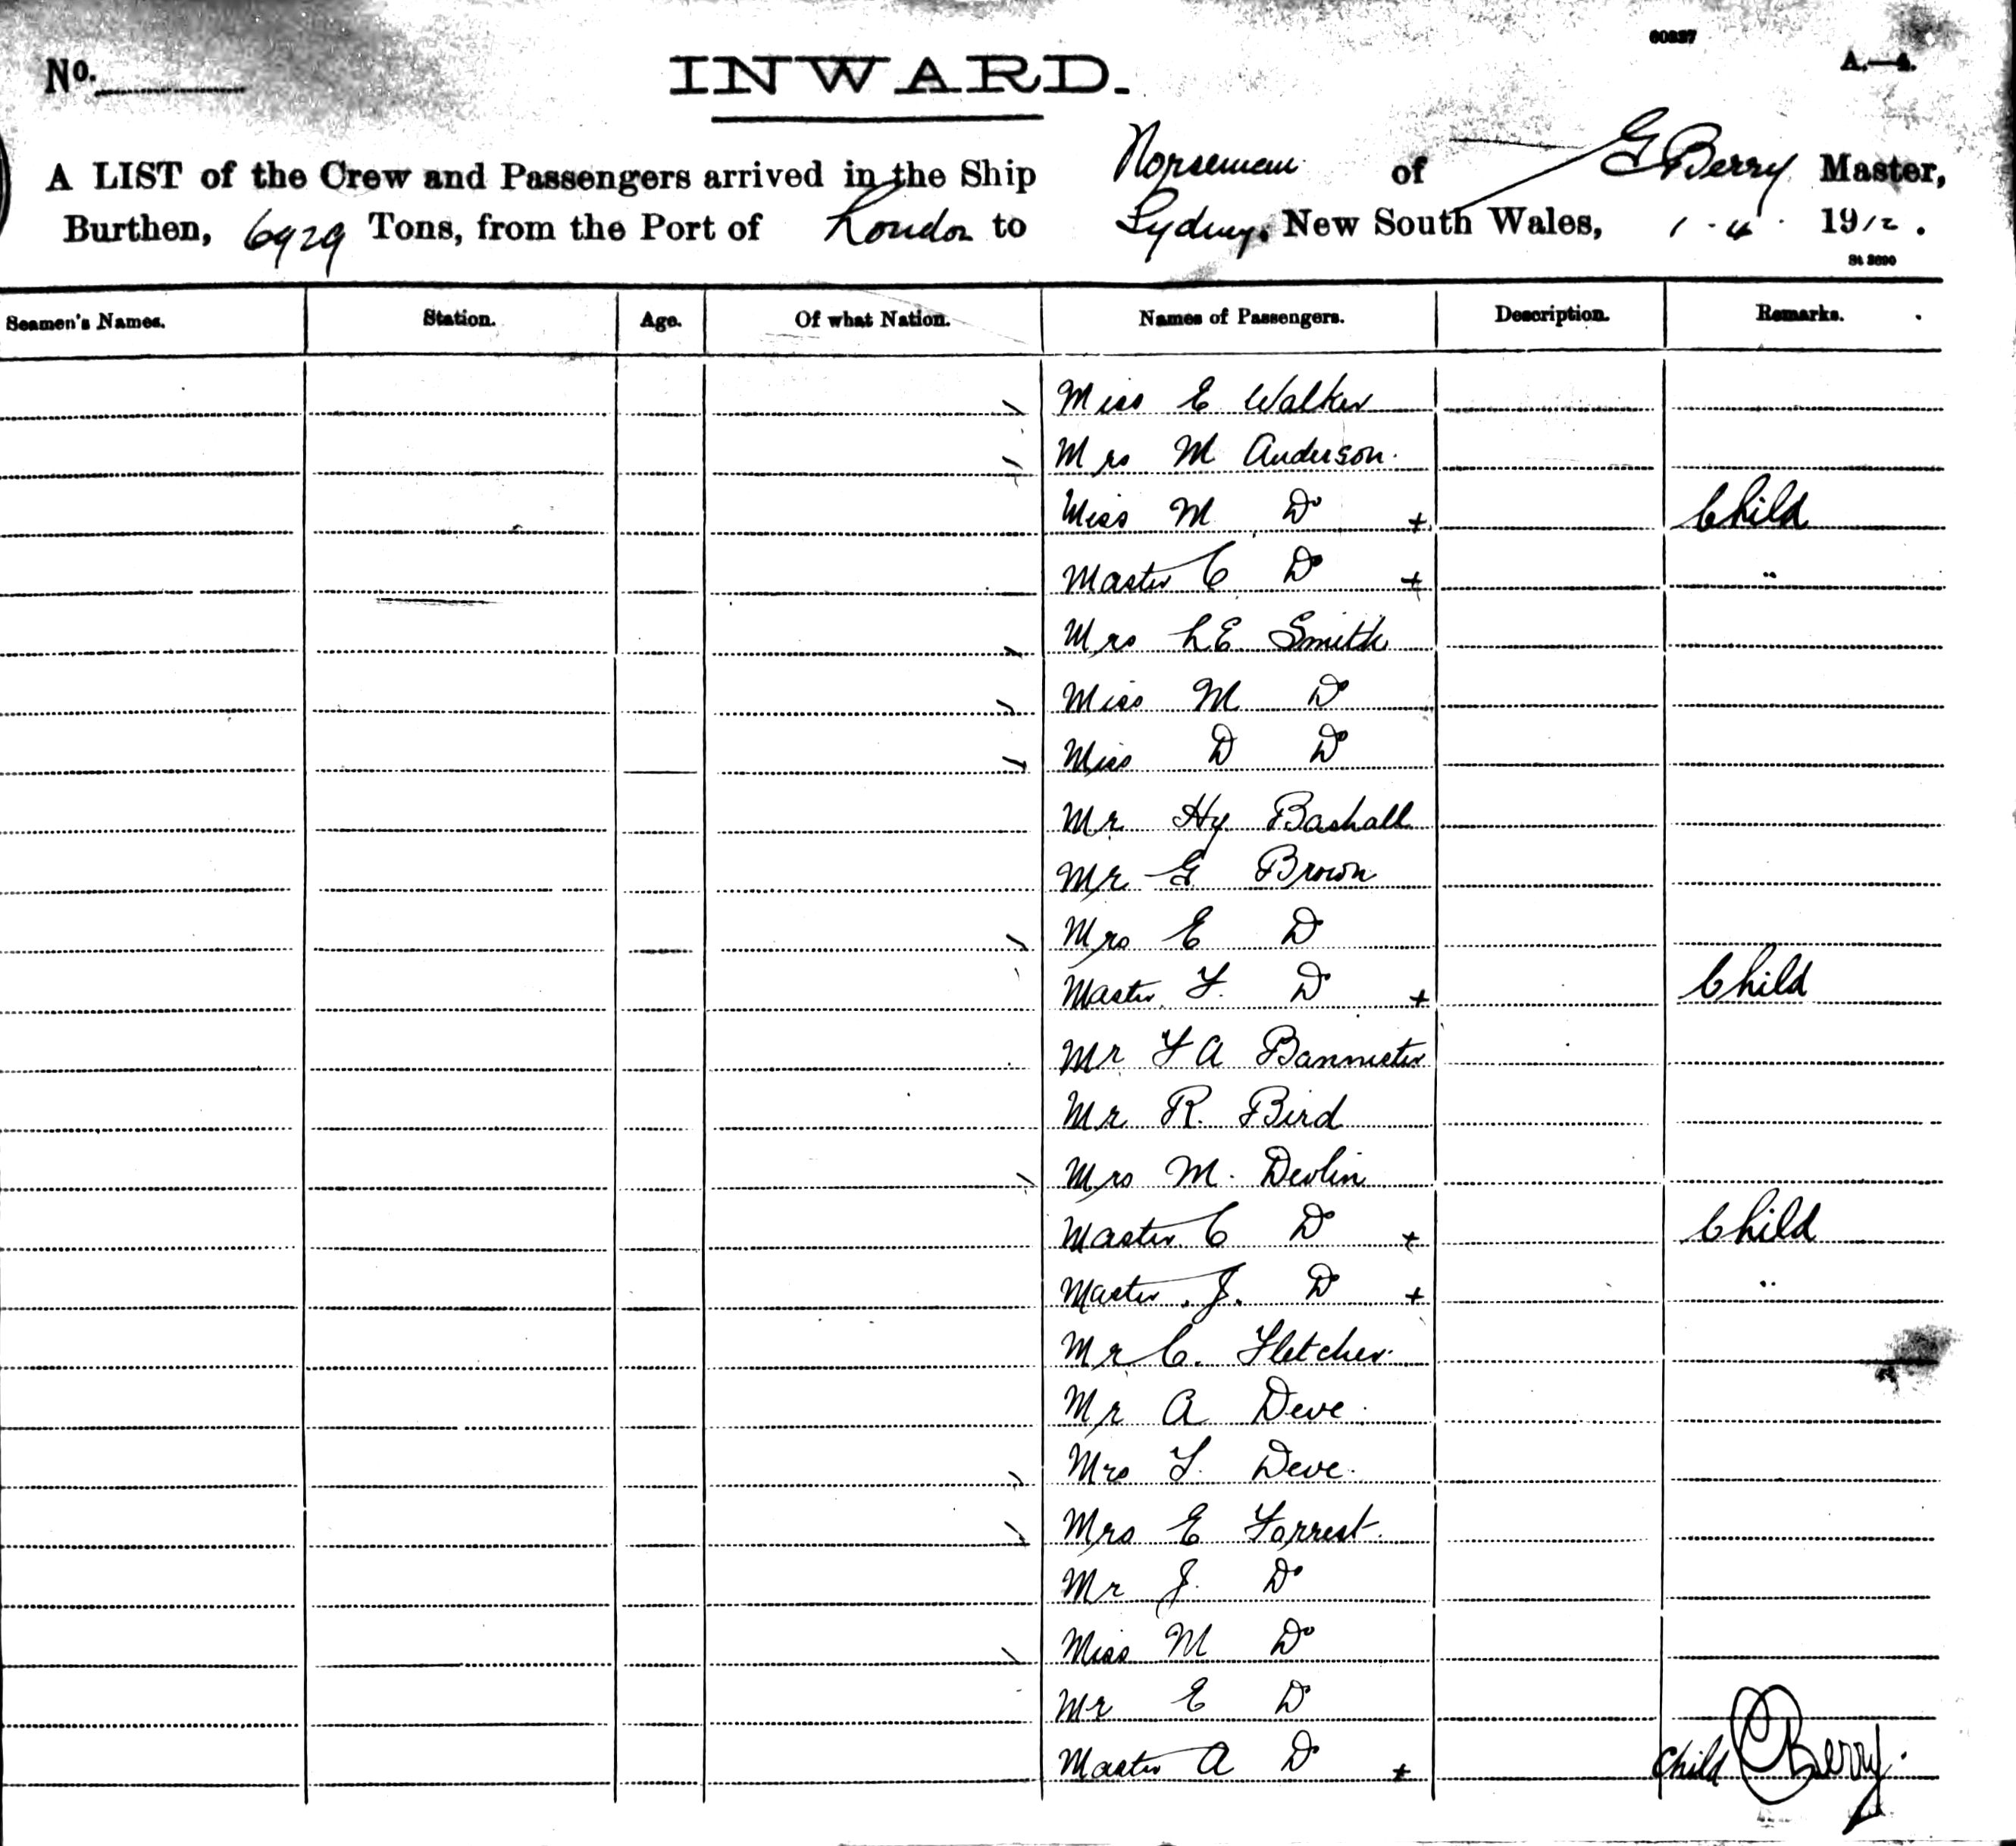 60237
No. INWARD. A.—4.
A LIST of the Crew and Passengers arrived in the Ship Norseman of G Berry Master,
Burthen, 6929 Tons, from the Port of London to Sydney, New South Wales, 1 - 4 - 1912.
St 3690
Seamen's Names. Station. Age. Of what Nation. Names of Passengers. Description. Remarks.
Miss E Walker
Mrs M Anderson.
Miss M Do + Child
Master C Do + "
Mrs L.E. Smith
Miss M Do
Miss D Do
Mr Hy Bashall
Mr G Brown
Mrs E D
Master F. Do + Child
Mr F A Bannister
Mr R. Bird
Mrs M. Devlin
Master C Do + Child
Master J. Do + "
Mr C. Fletcher.
Mr A Deve.
Mrs F. Deve.
Mrs E Forrest.
Mr J. Do
Miss M Do
Mr E Do
Master A Do + Child Berry.